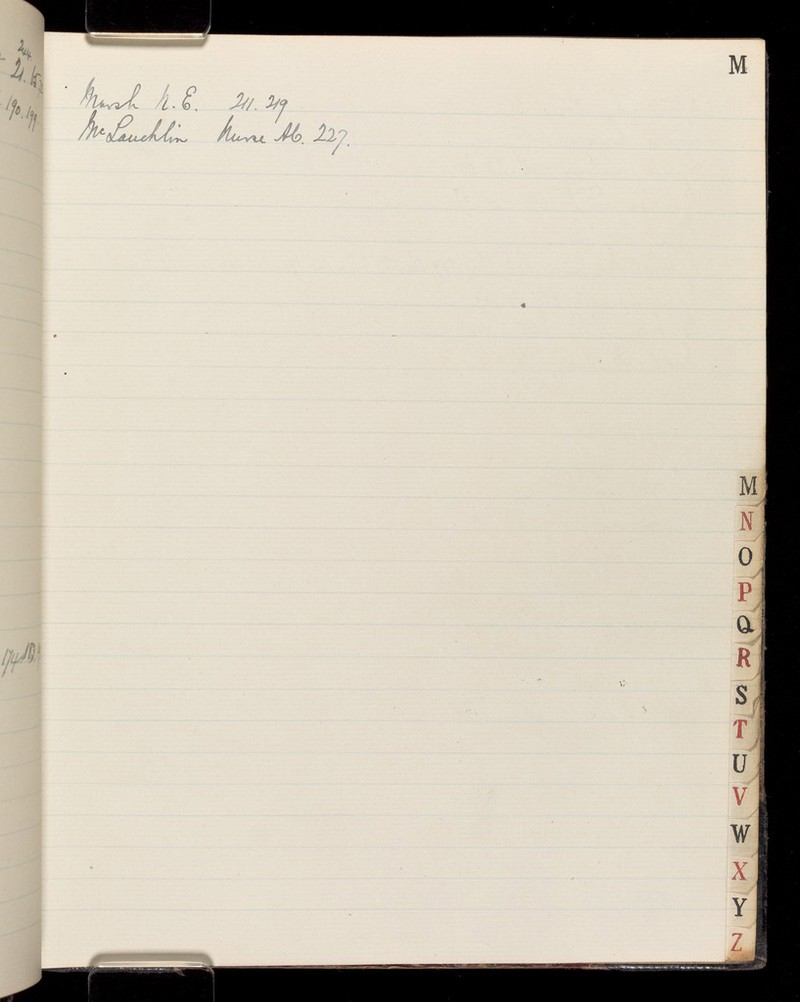 244.
21. 15
190. 199
174
M
Marsh N. E. 211. 219
McLauchlin Nurse Ab. 227.
M
N
O
P
Q
R
S
T
U
V
W
X
Y
Z